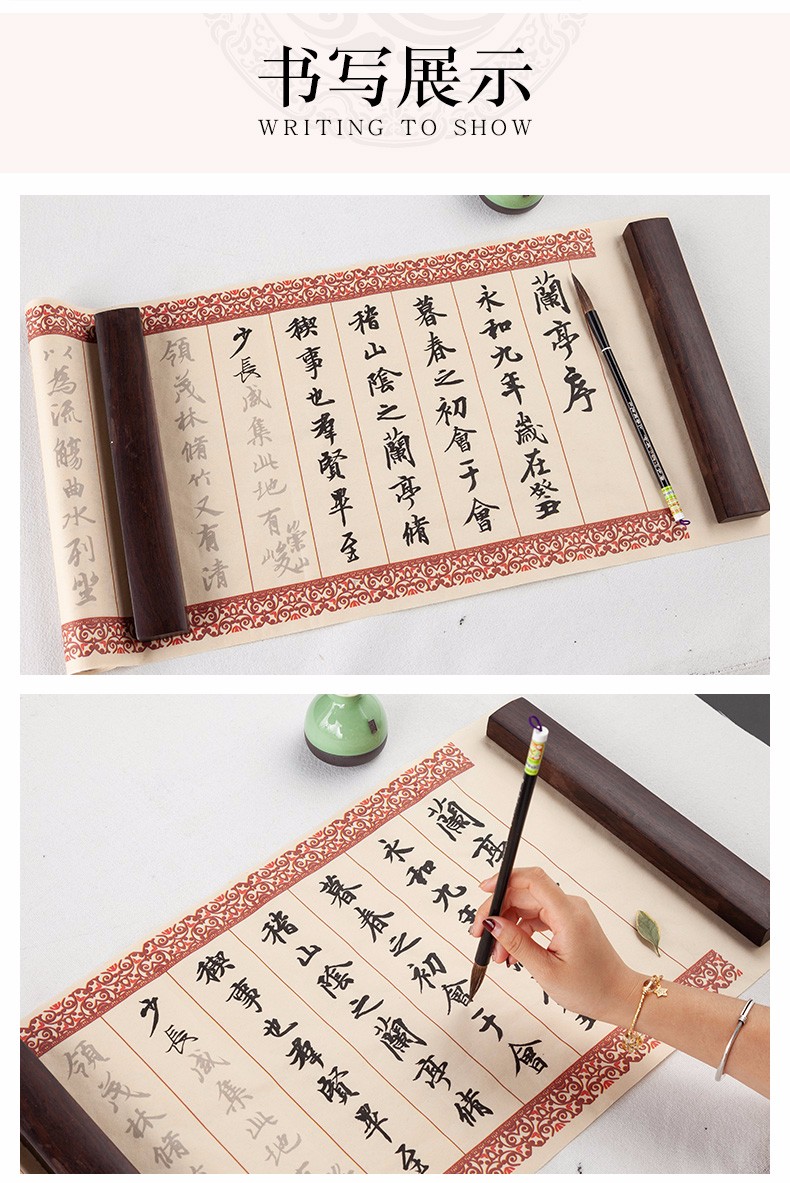 书写展示
WRITING TO SHOW
蘭亭序
永和九年歲在癸丑
暮春之初會于會
稽山陰之蘭亭脩
稧事也羣賢畢至
少長咸集此地有崇山峻
領茂林脩竹又有清
以為流觴曲水列坐
蘭亭
永和九年
暮春之初會于會
稽山陰之蘭亭脩
稧事也羣賢畢至
少長咸集此地
領茂林脩